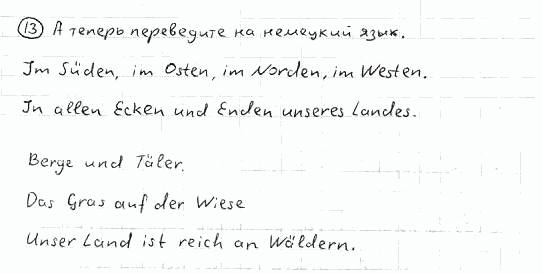 13 А теперь переведите на немецкий язык.
Im Süden, im Osten, im Norden, im Westen.
In allen Ecken und Enden unseres Landes.
Berge und Täler.
Das Gras auf der Wiese
Unser Land ist reich an Wäldern.